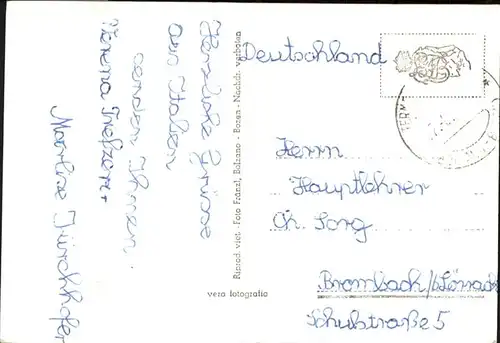 Herzliche Grüsse
aus Italien
senden Ihnen
Verena Trefzer +
Marlise
Riprod. viet. - Foto Fränzl, Bolzano - Bozen - Nachdr. verboten
vera fotografia
Deutschland
TERM
Herrn
Hauptlehrer
Ch. Sorg
Brombach/b. Lörrach
Schulstraße 5